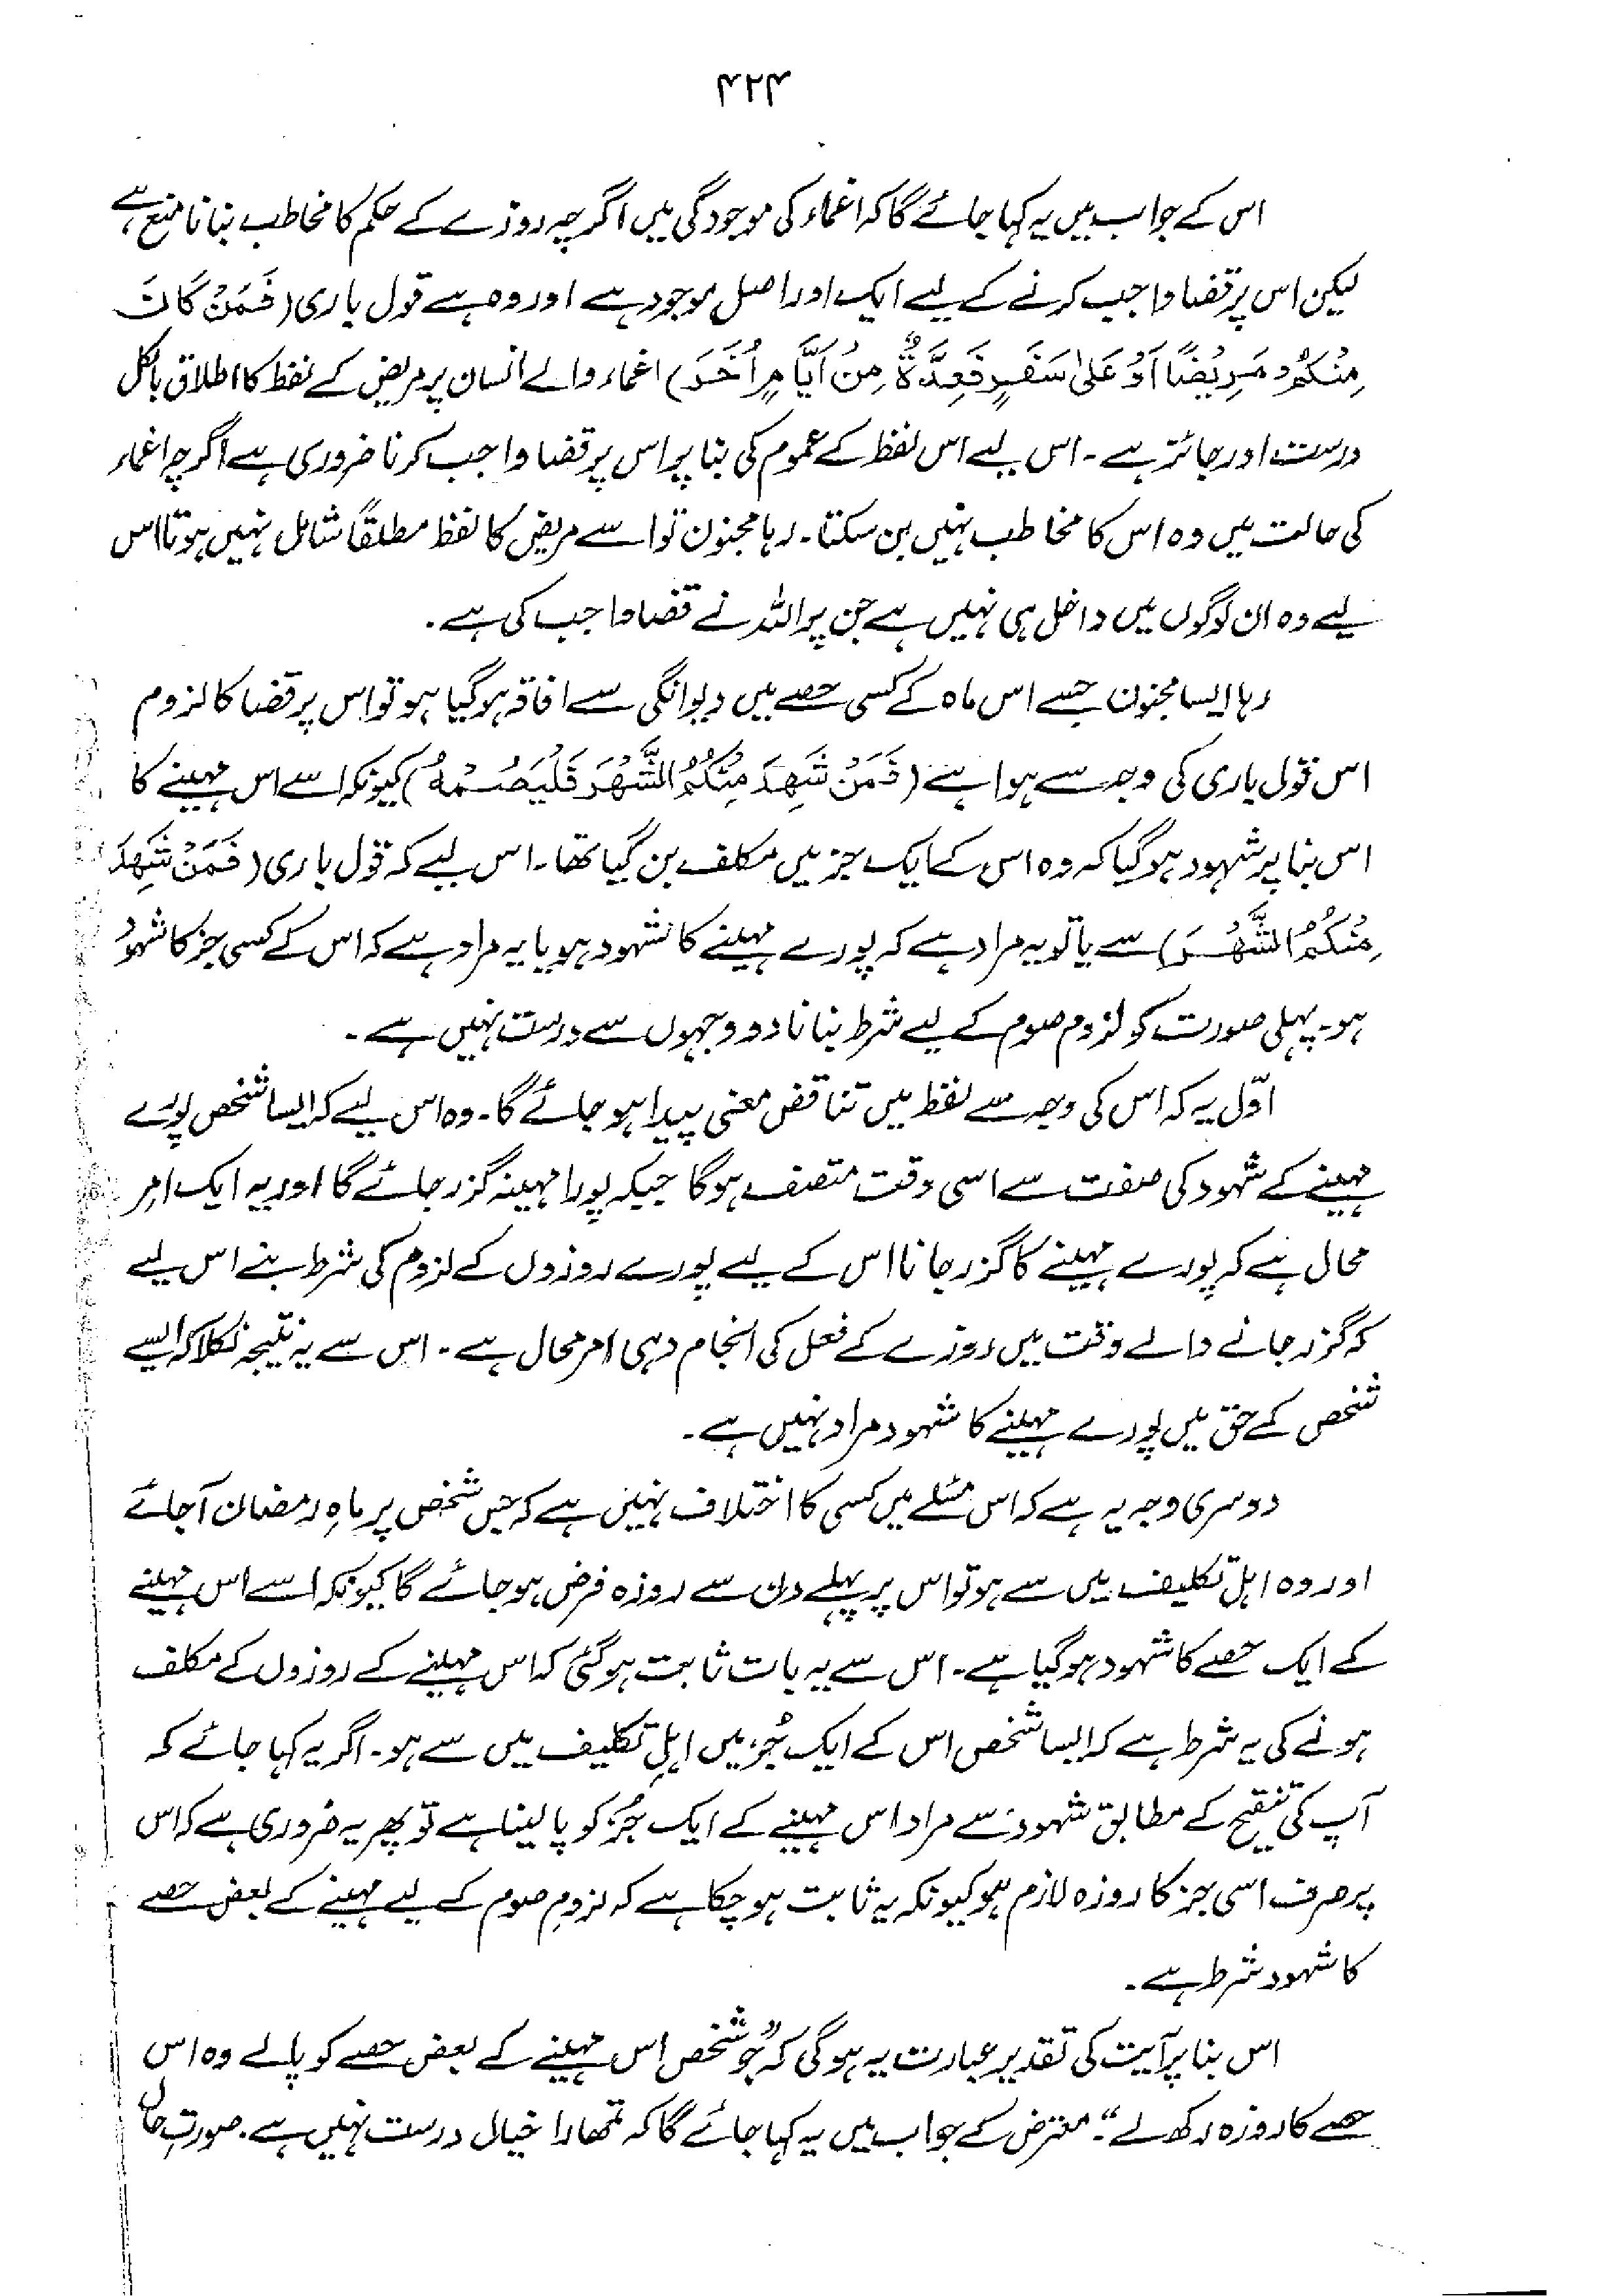 ۴۲۴
اس کے جواب میں یہ کہا جائے گا کہ اغماء کی موجودگی میں اگرچہ روزے کے حکم کا مخاطب بنانا منع ہے
لیکن اس پر قضا واجب کرنے کے لیے ایک اور اصل موجود ہے اور وہ ہے قول باری (فَمَنْ كَانَ
مِنْكُمْ مَرِيْضًا اَوْ عَلىٰ سَفَرٍ فَعِدَّةٌ مِنْ اَيَّامٍ اُخَرَ) اغماء والے انسان پر مریض کے لفظ کا اطلاق بالکل
درست اور جائز ہے۔ اس لیے اس لفظ کے عموم کی بنا پر اس پر قضا واجب کرنا ضروری ہے اگرچہ اغماء
کی حالت میں وہ اس کا مخاطب نہیں بن سکتا۔ رہا مجنون تو اسے مریض کا لفظ مطلقاً شامل نہیں ہوتا اس
لیے وہ ان لوگوں میں داخل ہی نہیں ہے جن پر اللہ نے قضا واجب کی ہے۔
رہا ایسا مجنون جسے اس ماہ کے کسی حصے میں دیوانگی سے افاقہ ہو گیا ہو تو اس پر قضا کا لزوم
اس قول باری کی وجہ سے ہوا ہے (فَمَنْ شَهِدَ مِنْكُمُ الشَّهْرَ فَلْيَصُمْهُ) کیونکہ اسے اس مہینے کا
اس بنا پر شہود ہو گیا کہ وہ اس کے ایک جز میں مکلف بن گیا تھا۔ اس لیے کہ قول باری (فَمَنْ شَهِدَ
مِنْكُمُ الشَّهْرَ) سے یا تو یہ مراد ہے کہ پورے مہینے کا شہود ہو یا یہ مراد ہے کہ اس کے کسی جز کا شہود
ہو۔ پہلی صورت کو لزوم صوم کے لیے شرط بنانا دو وجہوں سے درست نہیں ہے۔
اوّل یہ کہ اس کی وجہ سے لفظ میں تناقض معنی پیدا ہو جائے گا۔ وہ اس لیے کہ ایسا شخص پورے
مہینے کے شہود کی صفت سے اسی وقت متصف ہوگا جبکہ پورا مہینہ گزر جائے گا اور یہ ایک امر
محال ہے کہ پورے مہینے کا گزر جانا اس کے لیے پورے روزوں کے لزوم کی شرط بنے اس لیے
کہ گزر جانے والے وقت میں روزے کے فعل کی انجام دہی امر محال ہے۔ اس سے یہ نتیجہ نکلا کہ ایسے
شخص کے حق میں پورے مہینے کا شہود مراد نہیں ہے۔
دوسری وجہ یہ ہے کہ اس مسئلے میں کسی کا اختلاف نہیں ہے کہ جس شخص پر ماہِ رمضان آ جائے
اور وہ اہل تکلیف میں سے ہو تو اس پر پہلے دن سے روزہ فرض ہو جائے گا کیونکہ اسے اس مہینے
کے ایک حصے کا شہود ہو گیا ہے۔ اس سے یہ بات ثابت ہو گئی کہ اس مہینے کے روزوں کے مکلف
ہونے کی یہ شرط ہے کہ ایسا شخص اس کے ایک جُز میں اہلِ تکلیف میں سے ہو۔ اگر یہ کہا جائے کہ
آپ کی تنقیح کے مطابق شہود سے مراد اس مہینے کے ایک جُز کو پا لینا ہے تو پھر یہ ضروری ہے کہ اس
پر صرف اسی جز کا روزہ لازم ہو کیونکہ یہ ثابت ہو چکا ہے کہ لزومِ صوم کے لیے مہینے کے بعض حصے
کا شہود شرط ہے۔
اس بنا پر آیت کی تقدیر عبارت یہ ہوگی کہ "جو شخص اس مہینے کے بعض حصے کو پالے وہ اس
حصے کا روزہ رکھ لے"۔ معترض کے جواب میں یہ کہا جائے گا کہ تمھارا خیال درست نہیں ہے۔ صورتِ حال